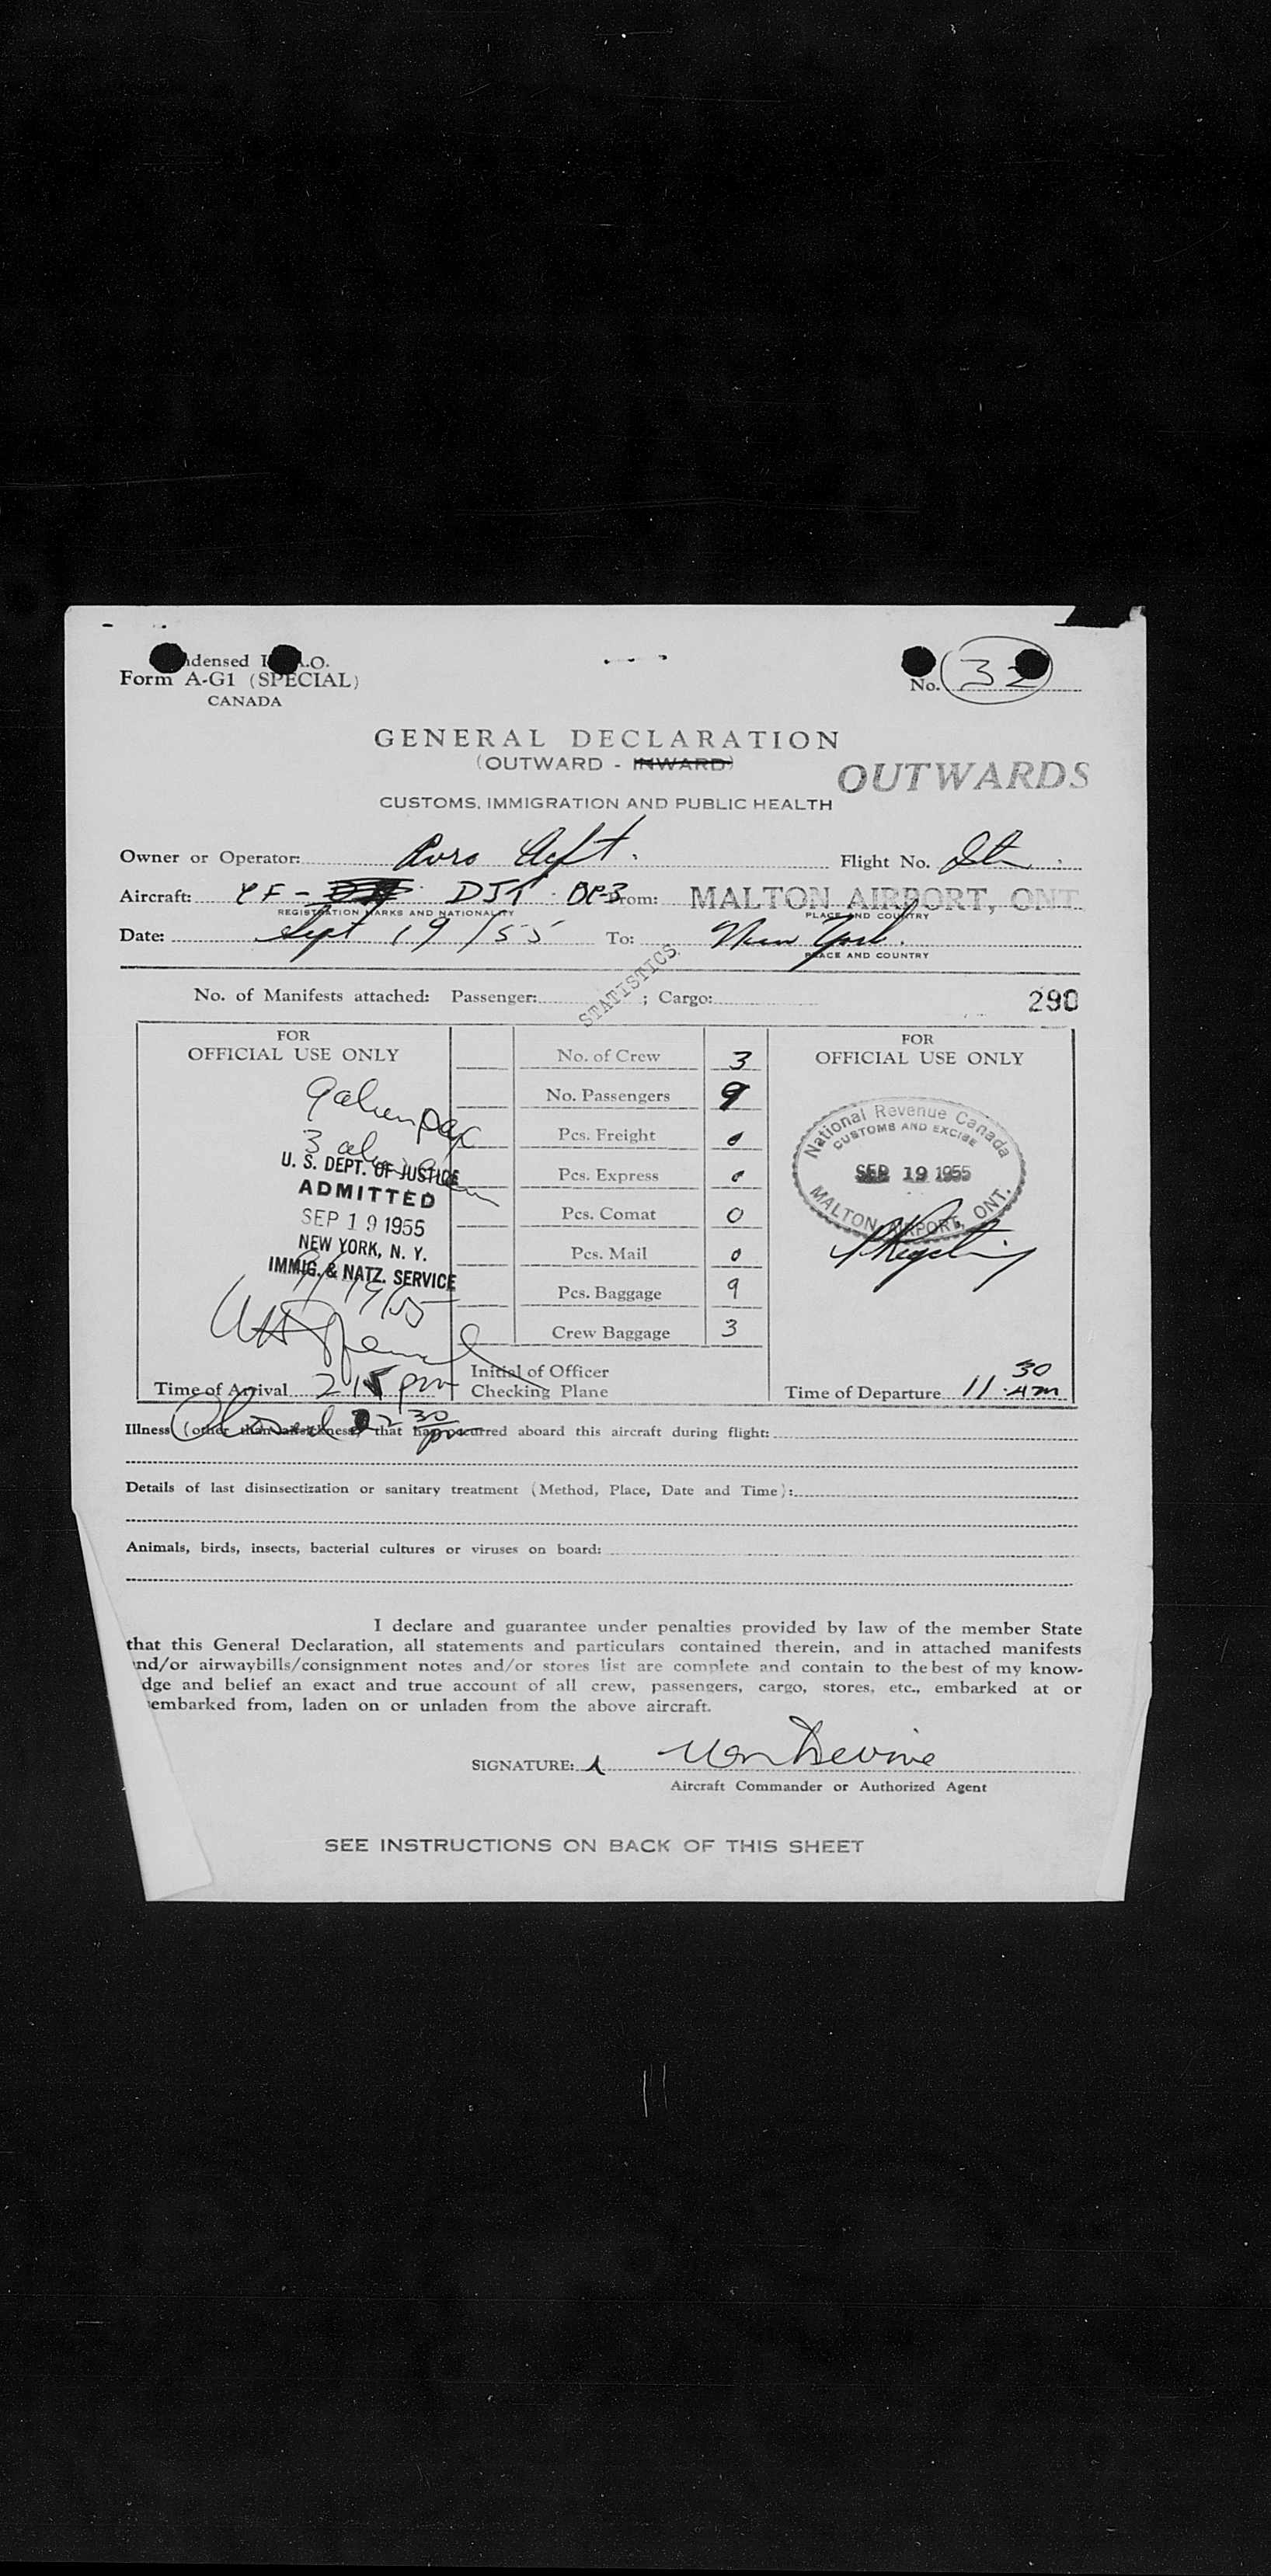 Form A-G1 (SPECIAL)
CANADA
No. 32
GENERAL DECLARATION
(OUTWARD - INWARD)
OUTWARDS
CUSTOMS, IMMIGRATION AND PUBLIC HEALTH
Owner or Operator: Avro Acft. Flight No.
Aircraft: CF- DJT From: MALTON AIRPORT, ONT
REGISTRATION MARKS AND NATIONALITY PLACE AND COUNTRY
Date: Sept 19/55 To: New York.
PLACE AND COUNTRY
STATISTICS
No. of Manifests attached: Passenger: ; Cargo: 290
FOR
OFFICIAL USE ONLY
9 alien pax
3 alien
U. S. DEPT. OF JUSTICE
ADMITTED
SEP 19 1955
NEW YORK, N. Y.
IMMIG. & NATZ. SERVICE
9/19/55
Time of Arrival 215 pm
No. of Crew 3
No. Passengers 9
Pcs. Freight 0
Pcs. Express 0
Pcs. Comat 0
Pcs. Mail 0
Pcs. Baggage 9
Crew Baggage 3
Initial of Officer
Checking Plane
FOR
OFFICIAL USE ONLY
National Revenue Canada
CUSTOMS AND EXCISE
SEP 19 1955
MALTON AIRPORT, ONT.
Time of Departure 11 30 AM
Illness (other than airsickness) that has occurred aboard this aircraft during flight:
Details of last disinsectization or sanitary treatment (Method, Place, Date and Time):
Animals, birds, insects, bacterial cultures or viruses on board:
I declare and guarantee under penalties provided by law of the member State
that this General Declaration, all statements and particulars contained therein, and in attached manifests
and/or airwaybills/consignment notes and/or stores list are complete and contain to the best of my know-
dge and belief an exact and true account of all crew, passengers, cargo, stores, etc., embarked at or
embarked from, laden on or unladen from the above aircraft.
SIGNATURE: Devine
Aircraft Commander or Authorized Agent
SEE INSTRUCTIONS ON BACK OF THIS SHEET